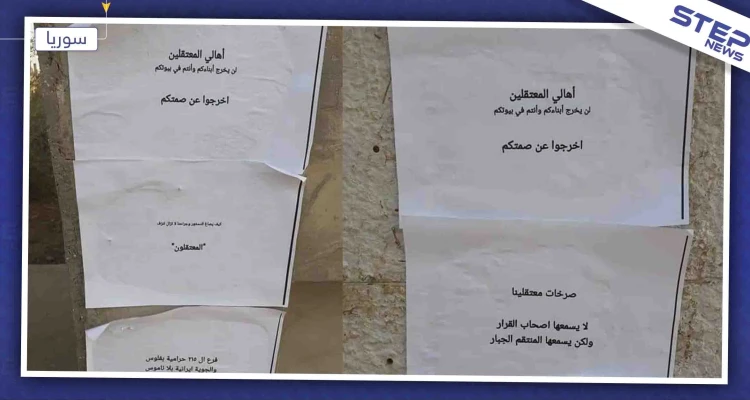 سوريا
STEP
NEWS
أهالي المعتقلين
لن يخرج أبناءكم وأنتم في بيوتكم
اخرجوا عن صمتكم
كيف يصاغ الدستور وجراحنا لا تزال تنزف
"المعتقلون"
فرع ال ٢١٥ حرامية بفلوس
والجوية ايرانية بلا ناموس
أهالي المعتقلين
لن يخرج أبناءكم وأنتم في بيوتكم
اخرجوا عن صمتكم
صرخات معتقلينا
لا يسمعها اصحاب القرار
ولكن يسمعها المنتقم الجبار